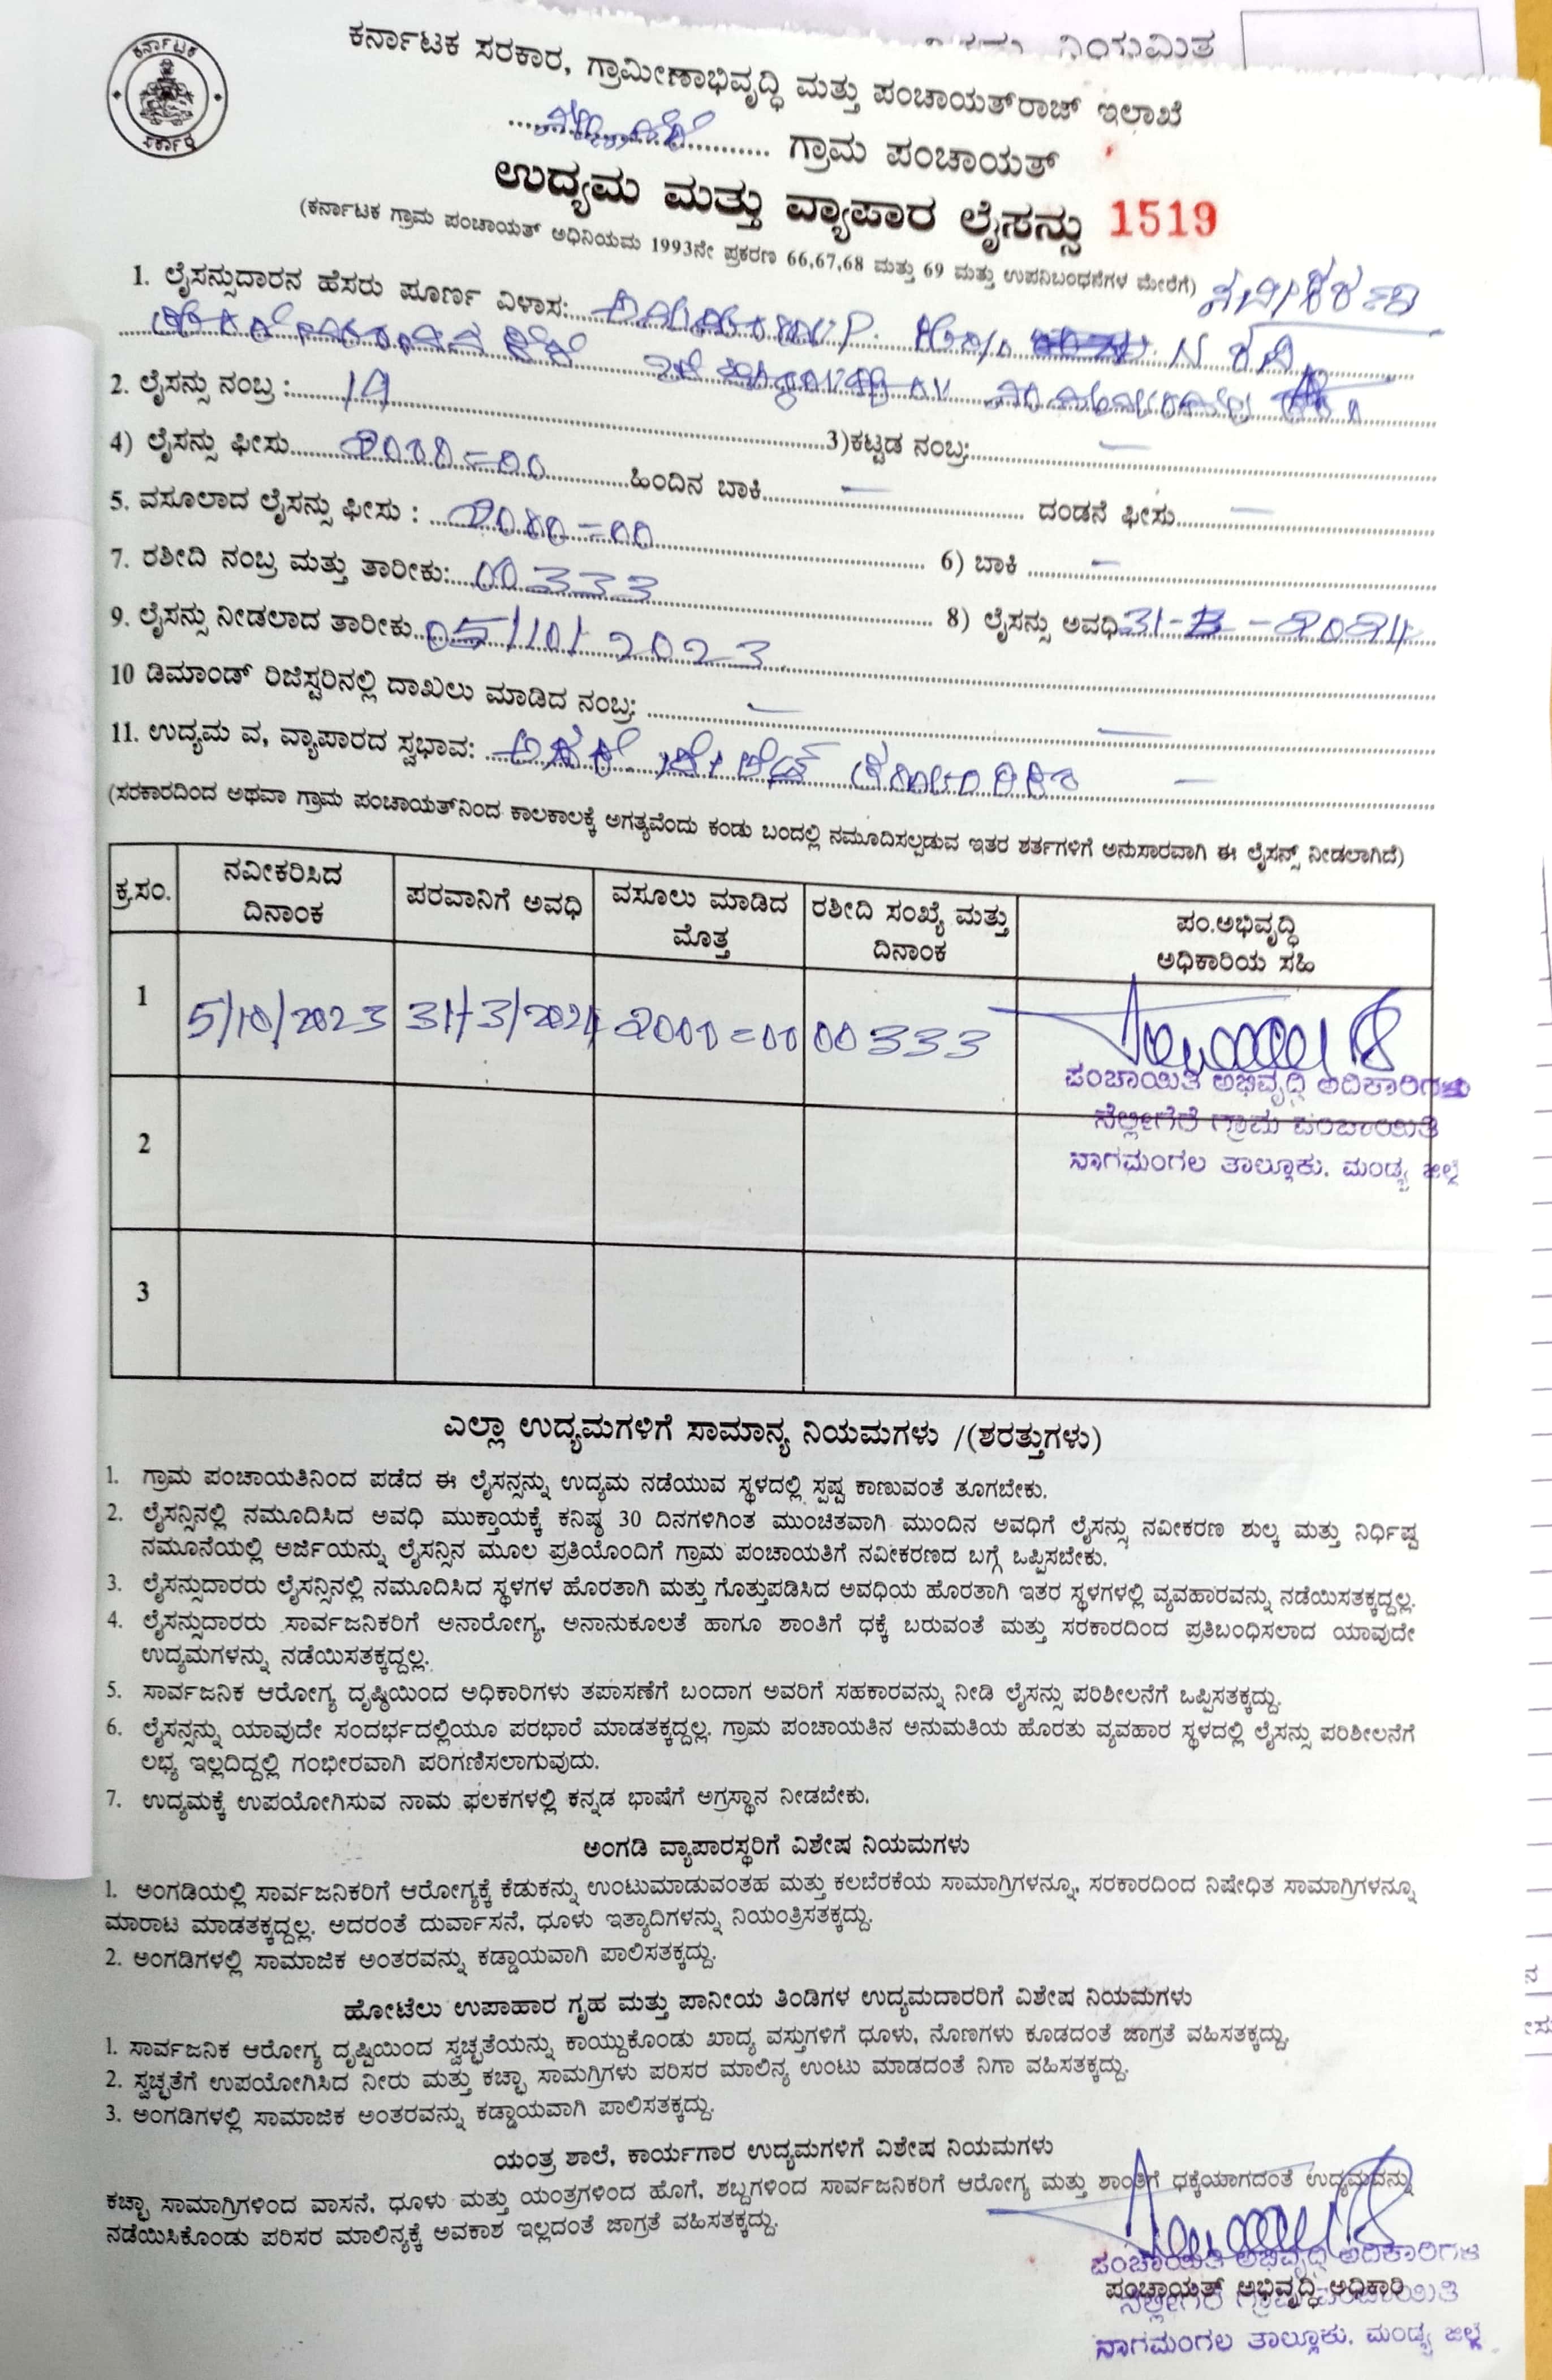 ಕರ್ನಾಟಕ
ಸರ್ಕಾರ
ನಿಯಮಿತ
ಕರ್ನಾಟಕ ಸರಕಾರ, ಗ್ರಾಮೀಣಾಭಿವೃದ್ಧಿ ಮತ್ತು ಪಂಚಾಯತ್‌ರಾಜ್ ಇಲಾಖೆ
ಗ್ರಾಮ ಪಂಚಾಯತ್
ಉದ್ಯಮ ಮತ್ತು ವ್ಯಾಪಾರ ಲೈಸನ್ಸು 1519
(ಕರ್ನಾಟಕ ಗ್ರಾಮ ಪಂಚಾಯತ್ ಅಧಿನಿಯಮ 1993ನೇ ಪ್ರಕರಣ 66,67,68 ಮತ್ತು 69 ಮತ್ತು ಉಪನಿಬಂಧನೆಗಳ ಮೇರೆಗೆ)
1. ಲೈಸನ್ಸುದಾರನ ಹೆಸರು ಪೂರ್ಣ ವಿಳಾಸ:
2. ಲೈಸನ್ಸು ನಂಬ್ರ : 19
3)ಕಟ್ಟಡ ನಂಬ್ರ: —
4) ಲೈಸನ್ಸು ಫೀಸು 2000=00 ಹಿಂದಿನ ಬಾಕಿ — ದಂಡನೆ ಫೀಸು —
5. ವಸೂಲಾದ ಲೈಸನ್ಸು ಫೀಸು : 2000=00 6) ಬಾಕಿ —
7. ರಶೀದಿ ನಂಬ್ರ ಮತ್ತು ತಾರೀಕು: 00333 8) ಲೈಸನ್ಸು ಅವಧಿ 31-3-2024
9. ಲೈಸನ್ಸು ನೀಡಲಾದ ತಾರೀಕು 05/10/2023
10 ಡಿಮಾಂಡ್ ರಿಜಿಸ್ಟರಿನಲ್ಲಿ ದಾಖಲು ಮಾಡಿದ ನಂಬ್ರ: —
11. ಉದ್ಯಮ ವ, ವ್ಯಾಪಾರದ ಸ್ವಭಾವ:
(ಸರಕಾರದಿಂದ ಅಥವಾ ಗ್ರಾಮ ಪಂಚಾಯತ್‌ನಿಂದ ಕಾಲಕಾಲಕ್ಕೆ ಅಗತ್ಯವೆಂದು ಕಂಡು ಬಂದಲ್ಲಿ ನಮೂದಿಸಲ್ಪಡುವ ಇತರ ಶರ್ತಗಳಿಗೆ ಅನುಸಾರವಾಗಿ ಈ ಲೈಸನ್ಸ್ ನೀಡಲಾಗಿದೆ)
ಕ್ರ.ಸಂ. ನವೀಕರಿಸಿದ ದಿನಾಂಕ ಪರವಾನಿಗೆ ಅವಧಿ ವಸೂಲು ಮಾಡಿದ ಮೊತ್ತ ರಶೀದಿ ಸಂಖ್ಯೆ ಮತ್ತು ದಿನಾಂಕ ಪಂ.ಅಭಿವೃದ್ಧಿ ಅಧಿಕಾರಿಯ ಸಹಿ
1 5/10/2023 31/3/2024 2000=00 00333
ಪಂಚಾಯಿತಿ ಅಭಿವೃದ್ಧಿ ಅದಿಕಾರಿಗಳು
ನೆಲ್ಲೀಗೆರೆ ಗ್ರಾಮ ಪಂಚಾಯಿತಿ
ನಾಗಮಂಗಲ ತಾಲ್ಲೂಕು. ಮಂಡ್ಯ ಜಿಲ್ಲೆ
2
3
ಎಲ್ಲಾ ಉದ್ಯಮಗಳಿಗೆ ಸಾಮಾನ್ಯ ನಿಯಮಗಳು /(ಶರತ್ತುಗಳು)
1. ಗ್ರಾಮ ಪಂಚಾಯತಿನಿಂದ ಪಡೆದ ಈ ಲೈಸನ್ಸನ್ನು ಉದ್ಯಮ ನಡೆಯುವ ಸ್ಥಳದಲ್ಲಿ ಸ್ಪಷ್ಟ ಕಾಣುವಂತೆ ತೂಗಬೇಕು.
2. ಲೈಸನ್ಸಿನಲ್ಲಿ ನಮೂದಿಸಿದ ಅವಧಿ ಮುಕ್ತಾಯಕ್ಕೆ ಕನಿಷ್ಠ 30 ದಿನಗಳಿಗಿಂತ ಮುಂಚಿತವಾಗಿ ಮುಂದಿನ ಅವಧಿಗೆ ಲೈಸನ್ಸು ನವೀಕರಣ ಶುಲ್ಕ ಮತ್ತು ನಿರ್ಧಿಷ್ಟ
ನಮೂನೆಯಲ್ಲಿ ಅರ್ಜಿಯನ್ನು ಲೈಸನ್ಸಿನ ಮೂಲ ಪ್ರತಿಯೊಂದಿಗೆ ಗ್ರಾಮ ಪಂಚಾಯತಿಗೆ ನವೀಕರಣದ ಬಗ್ಗೆ ಒಪ್ಪಿಸಬೇಕು.
3. ಲೈಸನ್ಸುದಾರರು ಲೈಸನ್ಸಿನಲ್ಲಿ ನಮೂದಿಸಿದ ಸ್ಥಳಗಳ ಹೊರತಾಗಿ ಮತ್ತು ಗೊತ್ತುಪಡಿಸಿದ ಅವಧಿಯ ಹೊರತಾಗಿ ಇತರ ಸ್ಥಳಗಳಲ್ಲಿ ವ್ಯವಹಾರವನ್ನು ನಡೆಯಿಸತಕ್ಕದ್ದಲ್ಲ.
4. ಲೈಸನ್ಸುದಾರರು ಸಾರ್ವಜನಿಕರಿಗೆ ಅನಾರೋಗ್ಯ, ಅನಾನುಕೂಲತೆ ಹಾಗೂ ಶಾಂತಿಗೆ ಧಕ್ಕೆ ಬರುವಂತೆ ಮತ್ತು ಸರಕಾರದಿಂದ ಪ್ರತಿಬಂಧಿಸಲಾದ ಯಾವುದೇ
ಉದ್ಯಮಗಳನ್ನು ನಡೆಯಿಸತಕ್ಕದ್ದಲ್ಲ.
5. ಸಾರ್ವಜನಿಕ ಆರೋಗ್ಯ ದೃಷ್ಠಿಯಿಂದ ಅಧಿಕಾರಿಗಳು ತಪಾಸಣೆಗೆ ಬಂದಾಗ ಅವರಿಗೆ ಸಹಕಾರವನ್ನು ನೀಡಿ ಲೈಸನ್ಸು ಪರಿಶೀಲನೆಗೆ ಒಪ್ಪಿಸತಕ್ಕದ್ದು.
6. ಲೈಸನ್ಸನ್ನು ಯಾವುದೇ ಸಂದರ್ಭದಲ್ಲಿಯೂ ಪರಭಾರೆ ಮಾಡತಕ್ಕದ್ದಲ್ಲ. ಗ್ರಾಮ ಪಂಚಾಯತಿನ ಅನುಮತಿಯ ಹೊರತು ವ್ಯವಹಾರ ಸ್ಥಳದಲ್ಲಿ ಲೈಸನ್ಸು ಪರಿಶೀಲನೆಗೆ
ಲಭ್ಯ ಇಲ್ಲದಿದ್ದಲ್ಲಿ ಗಂಭೀರವಾಗಿ ಪರಿಗಣಿಸಲಾಗುವುದು.
7. ಉದ್ಯಮಕ್ಕೆ ಉಪಯೋಗಿಸುವ ನಾಮ ಫಲಕಗಳಲ್ಲಿ ಕನ್ನಡ ಭಾಷೆಗೆ ಅಗ್ರಸ್ಥಾನ ನೀಡಬೇಕು.
ಅಂಗಡಿ ವ್ಯಾಪಾರಸ್ಥರಿಗೆ ವಿಶೇಷ ನಿಯಮಗಳು
1. ಅಂಗಡಿಯಲ್ಲಿ ಸಾರ್ವಜನಿಕರಿಗೆ ಆರೋಗ್ಯಕ್ಕೆ ಕೆಡುಕನ್ನು ಉಂಟುಮಾಡುವಂತಹ ಮತ್ತು ಕಲಬೆರಕೆಯ ಸಾಮಾಗ್ರಿಗಳನ್ನೂ, ಸರಕಾರದಿಂದ ನಿಷೇಧಿತ ಸಾಮಾಗ್ರಿಗಳನ್ನೂ
ಮಾರಾಟ ಮಾಡತಕ್ಕದ್ದಲ್ಲ. ಅದರಂತೆ ದುರ್ವಾಸನೆ, ಧೂಳು ಇತ್ಯಾದಿಗಳನ್ನು ನಿಯಂತ್ರಿಸತಕ್ಕದ್ದು.
2. ಅಂಗಡಿಗಳಲ್ಲಿ ಸಾಮಾಜಿಕ ಅಂತರವನ್ನು ಕಡ್ಡಾಯವಾಗಿ ಪಾಲಿಸತಕ್ಕದ್ದು.
ಹೋಟೆಲು ಉಪಾಹಾರ ಗೃಹ ಮತ್ತು ಪಾನೀಯ ತಿಂಡಿಗಳ ಉದ್ಯಮದಾರರಿಗೆ ವಿಶೇಷ ನಿಯಮಗಳು
1. ಸಾರ್ವಜನಿಕ ಆರೋಗ್ಯ ದೃಷ್ಟಿಯಿಂದ ಸ್ವಚ್ಛತೆಯನ್ನು ಕಾಯ್ದುಕೊಂಡು ಖಾದ್ಯ ವಸ್ತುಗಳಿಗೆ ಧೂಳು, ನೊಣಗಳು ಕೂಡದಂತೆ ಜಾಗ್ರತೆ ವಹಿಸತಕ್ಕದ್ದು.
2. ಸ್ವಚ್ಛತೆಗೆ ಉಪಯೋಗಿಸಿದ ನೀರು ಮತ್ತು ಕಚ್ಛಾ ಸಾಮಗ್ರಿಗಳು ಪರಿಸರ ಮಾಲಿನ್ಯ ಉಂಟು ಮಾಡದಂತೆ ನಿಗಾ ವಹಿಸತಕ್ಕದ್ದು.
3. ಅಂಗಡಿಗಳಲ್ಲಿ ಸಾಮಾಜಿಕ ಅಂತರವನ್ನು ಕಡ್ಡಾಯವಾಗಿ ಪಾಲಿಸತಕ್ಕದ್ದು.
ಯಂತ್ರ ಶಾಲೆ, ಕಾರ್ಯಗಾರ ಉದ್ಯಮಗಳಿಗೆ ವಿಶೇಷ ನಿಯಮಗಳು
ಕಚ್ಛಾ ಸಾಮಾಗ್ರಿಗಳಿಂದ ವಾಸನೆ, ಧೂಳು ಮತ್ತು ಯಂತ್ರಗಳಿಂದ ಹೊಗೆ, ಶಬ್ದಗಳಿಂದ ಸಾರ್ವಜನಿಕರಿಗೆ ಆರೋಗ್ಯ ಮತ್ತು ಶಾಂತಿಗೆ ಧಕ್ಕೆಯಾಗದಂತೆ ಉದ್ಯಮವನ್ನು
ನಡೆಯಿಸಿಕೊಂಡು ಪರಿಸರ ಮಾಲಿನ್ಯಕ್ಕೆ ಅವಕಾಶ ಇಲ್ಲದಂತೆ ಜಾಗ್ರತೆ ವಹಿಸತಕ್ಕದ್ದು.
ಪಂಚಾಯಿತಿ ಅಭಿವೃದ್ಧಿ ಅದಿಕಾರಿಗಳು
ಪಂಚಾಯತ್ ಅಭಿವೃದ್ಧಿ ಅಧಿಕಾರಿ
ನೆಲ್ಲೀಗೆರೆ ಗ್ರಾಮ ಪಂಚಾಯಿತಿ
ನಾಗಮಂಗಲ ತಾಲ್ಲೂಕು. ಮಂಡ್ಯ ಜಿಲ್ಲೆ